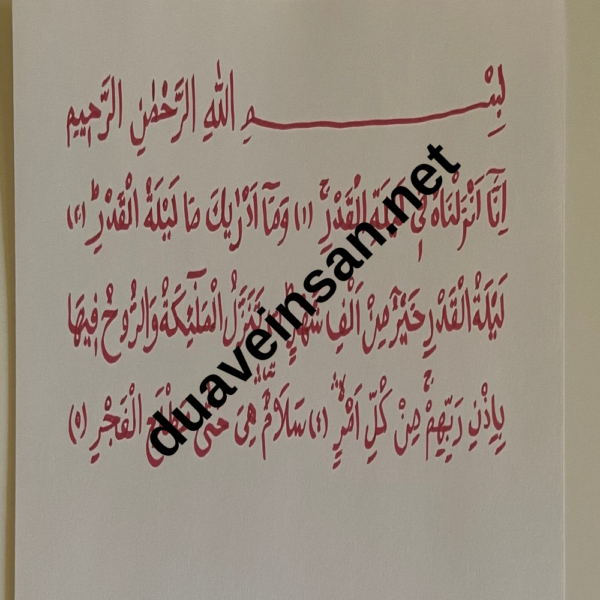 بِسْــــــــمِ اللهِ الرَّحْمٰنِ الرَّحِيمِ
اِنَّا اَنْزَلْنَاهُ فِي لَيْلَةِ الْقَدْرِ (١) وَمَا اَدْرٰيكَ مَا لَيْلَةُ الْقَدْرِ (٢)
لَيْلَةُ الْقَدْرِ خَيْرٌ مِنْ اَلْفِ شَهْرٍ تَنَزَّلُ الْمَلٰٓئِكَةُ وَالرُّوحُ فِيهَا
بِاِذْنِ رَبِّهِمْ مِنْ كُلِّ اَمْرٍ (٤) سَلَامٌ هِيَ حَتّٰى مَطْلَعِ الْفَجْرِ (٥)
duaveinsan.net